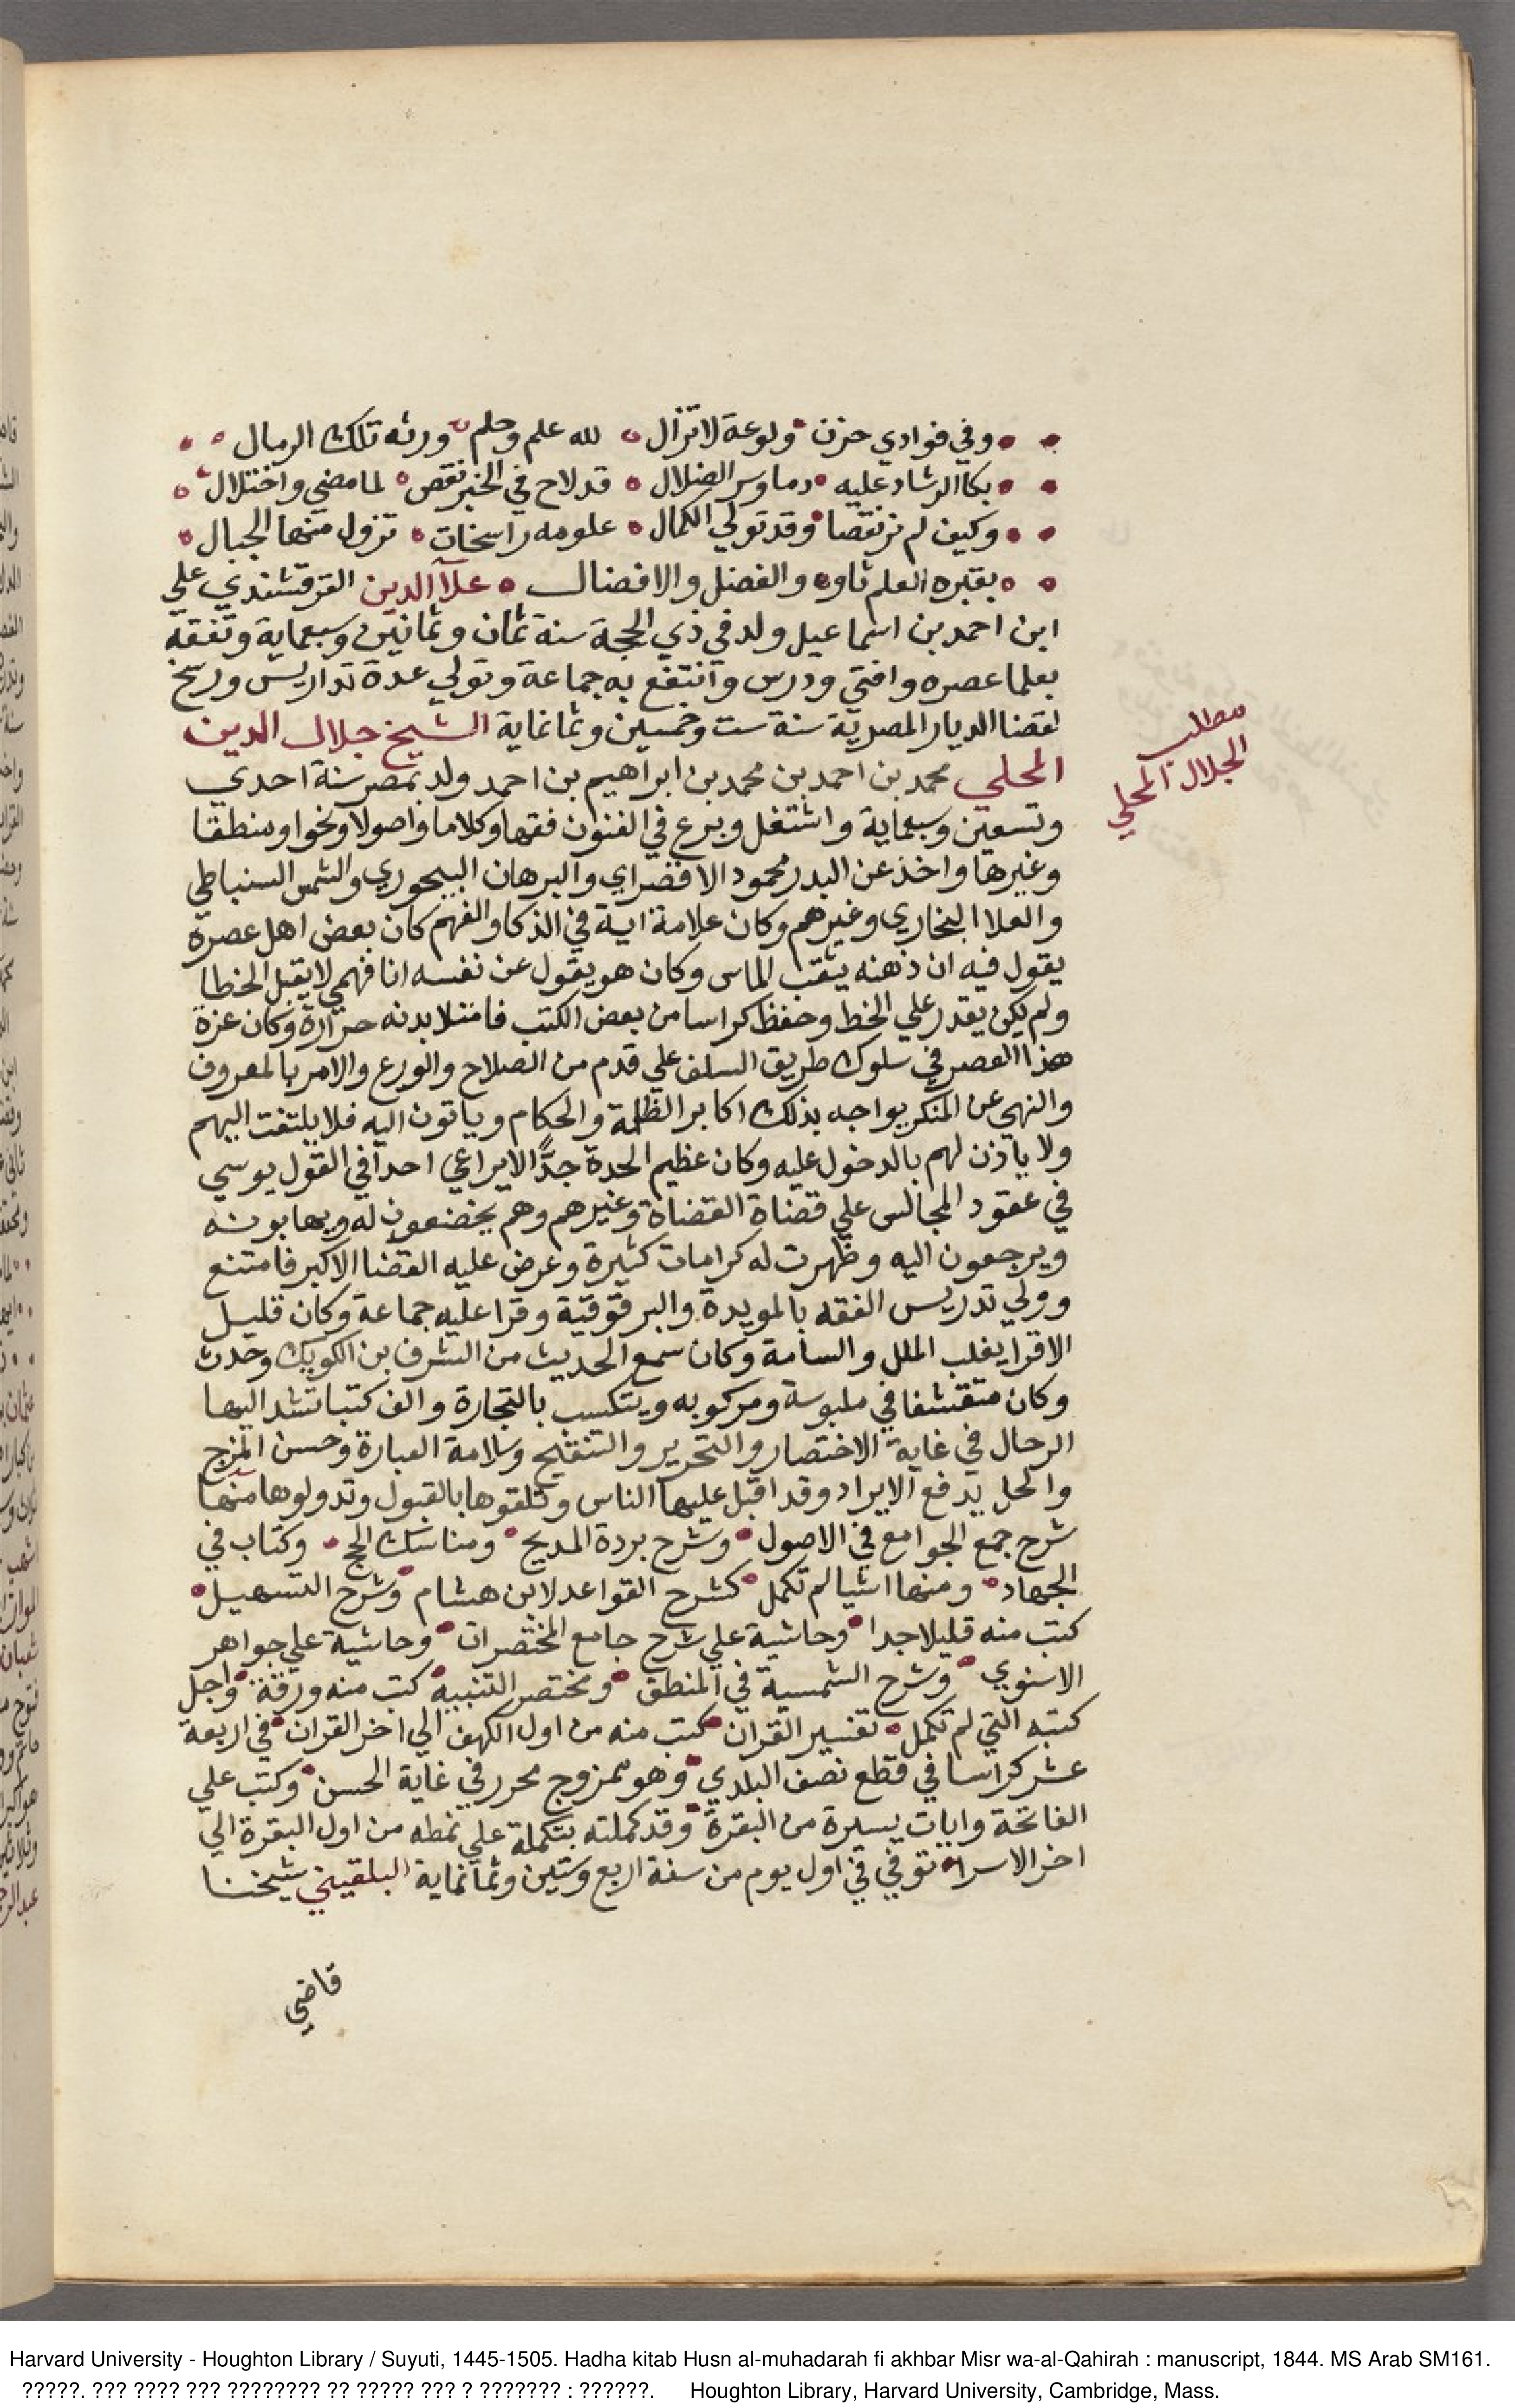 وفي فوادي حزن ولوعة لا تزال لله علم وحلم ورثه تلك الرمال
بكا الرشاد عليه دما وسر الضلال قد لاح في الخير نقص لما مضي واختلال
وكيف لم نر نقصا وقد تولي الكمال علومه راسخات تزول منها الجبال
بقبره العلم ثاو والفضل والافضال علآ الدين القرقشندي علي
ابن احمد بن اسماعيل ولد في ذي الحجة سنة ثمان وثمانين وسبعماية وتفقه
بعلما عصره وافتي ودرس وانتفع به جماعة وتولي عدة تداريس ورسخ
لقضا الديار المصرية سنة ست وخمسين وثمانماية الشيخ جلال الدين
المحلي محمد بن احمد بن محمد بن ابراهيم بن احمد ولد بمصر سنة احدي
مطلب
الجلال المحلي
وتسعين وسبعماية واشتغل وبرع في الفنون فقها وكلاما واصولا ونحوا ومنطقا
وغيرها واخذ عن البدر محمود الاقصراي والبرهان البيجوري والشمس السنباطي
والعلا البخاري وغيرهم وكان علامة اية في الذكا والفهم كان بعض اهل عصره
يقول فيه ان ذهنه يثقب الماس وكان هو يقول عن نفسه انا فهمي لا يقبل الخطا
ولم يكن يقدر علي الخط وحفظ كراسا من بعض الكتب فامتلا بدنه حرارة وكان عزة
هذا العصر في سلوك طريق السلف علي قدم من الصلاح والورع والامر بالمعروف
والنهي عن المنكر يواجه بذلك اكابر الظلمة والحكام وياتون اليه فلا يلتفت اليهم
ولا ياذن لهم بالدخول عليه وكان عظيم الحدة جدًّا لا يراعي احدا في القول يوسي
في عقود المجالس علي قضاة القضاة وغيرهم وهم يخضعون له ويهابونه
ويرجعون اليه وظهرت له كرامات كثيرة وعرض عليه القضا الاكبر فامتنع
وولي تدريس الفقه بالمويدة والبرقوقية وقرا عليه جماعة وكان قليل
الاقرا يغلب الملل والسامة وكان سمع الحديث من الشرف بن الكويك وحدث
وكان متقشفا في ملبوسة ومركوبه ويتكسب بالتجارة والف كتبا تشد اليها
الرحال في غاية الاختصار والتحرير والتنقيح وسلامة العبارة وحسن المزج
والحل يدفع الايراد وقد اقبل عليها الناس وتلقوها بالقبول وتدولوها منها
شرح جمع الجوامع في الاصول وشرح بردة المديح ومناسك الحج وكتاب في
الجهاد ومنها اشيا لم تكمل كشرح القواعد لابن هشام وشرح التسهيل
كتب منه قليلا جدا وحاشية علي شرح جامع المختصرات وحاشية علي جواهر
الاسنوي وشرح الشمسية في المنطق ومختصر التنبيه كتب منه ورقة واجل
كتبه التي لم تكمل تفسير القران كتب منه من اول الكهف الي اخر القران في اربعة
عشر كراسا في قطع نصف البلدي وهو ممزوج محرر في غاية الحسن وكتب علي
الفاتحة وايات يسيرة من البقرة وقد كملته بتكملة علي نمطه من اول البقرة الي
اخر الاسرا توفي في اول يوم من سنة اربع وستين وثمانماية البلقيني شيخنا
قاضي
Harvard University - Houghton Library / Suyuti, 1445-1505. Hadha kitab Husn al-muhadarah fi akhbar Misr wa-al-Qahirah : manuscript, 1844. MS Arab SM161.
?????. ??? ???? ??? ???????? ?? ????? ??? ? ??????? : ??????. Houghton Library, Harvard University, Cambridge, Mass.